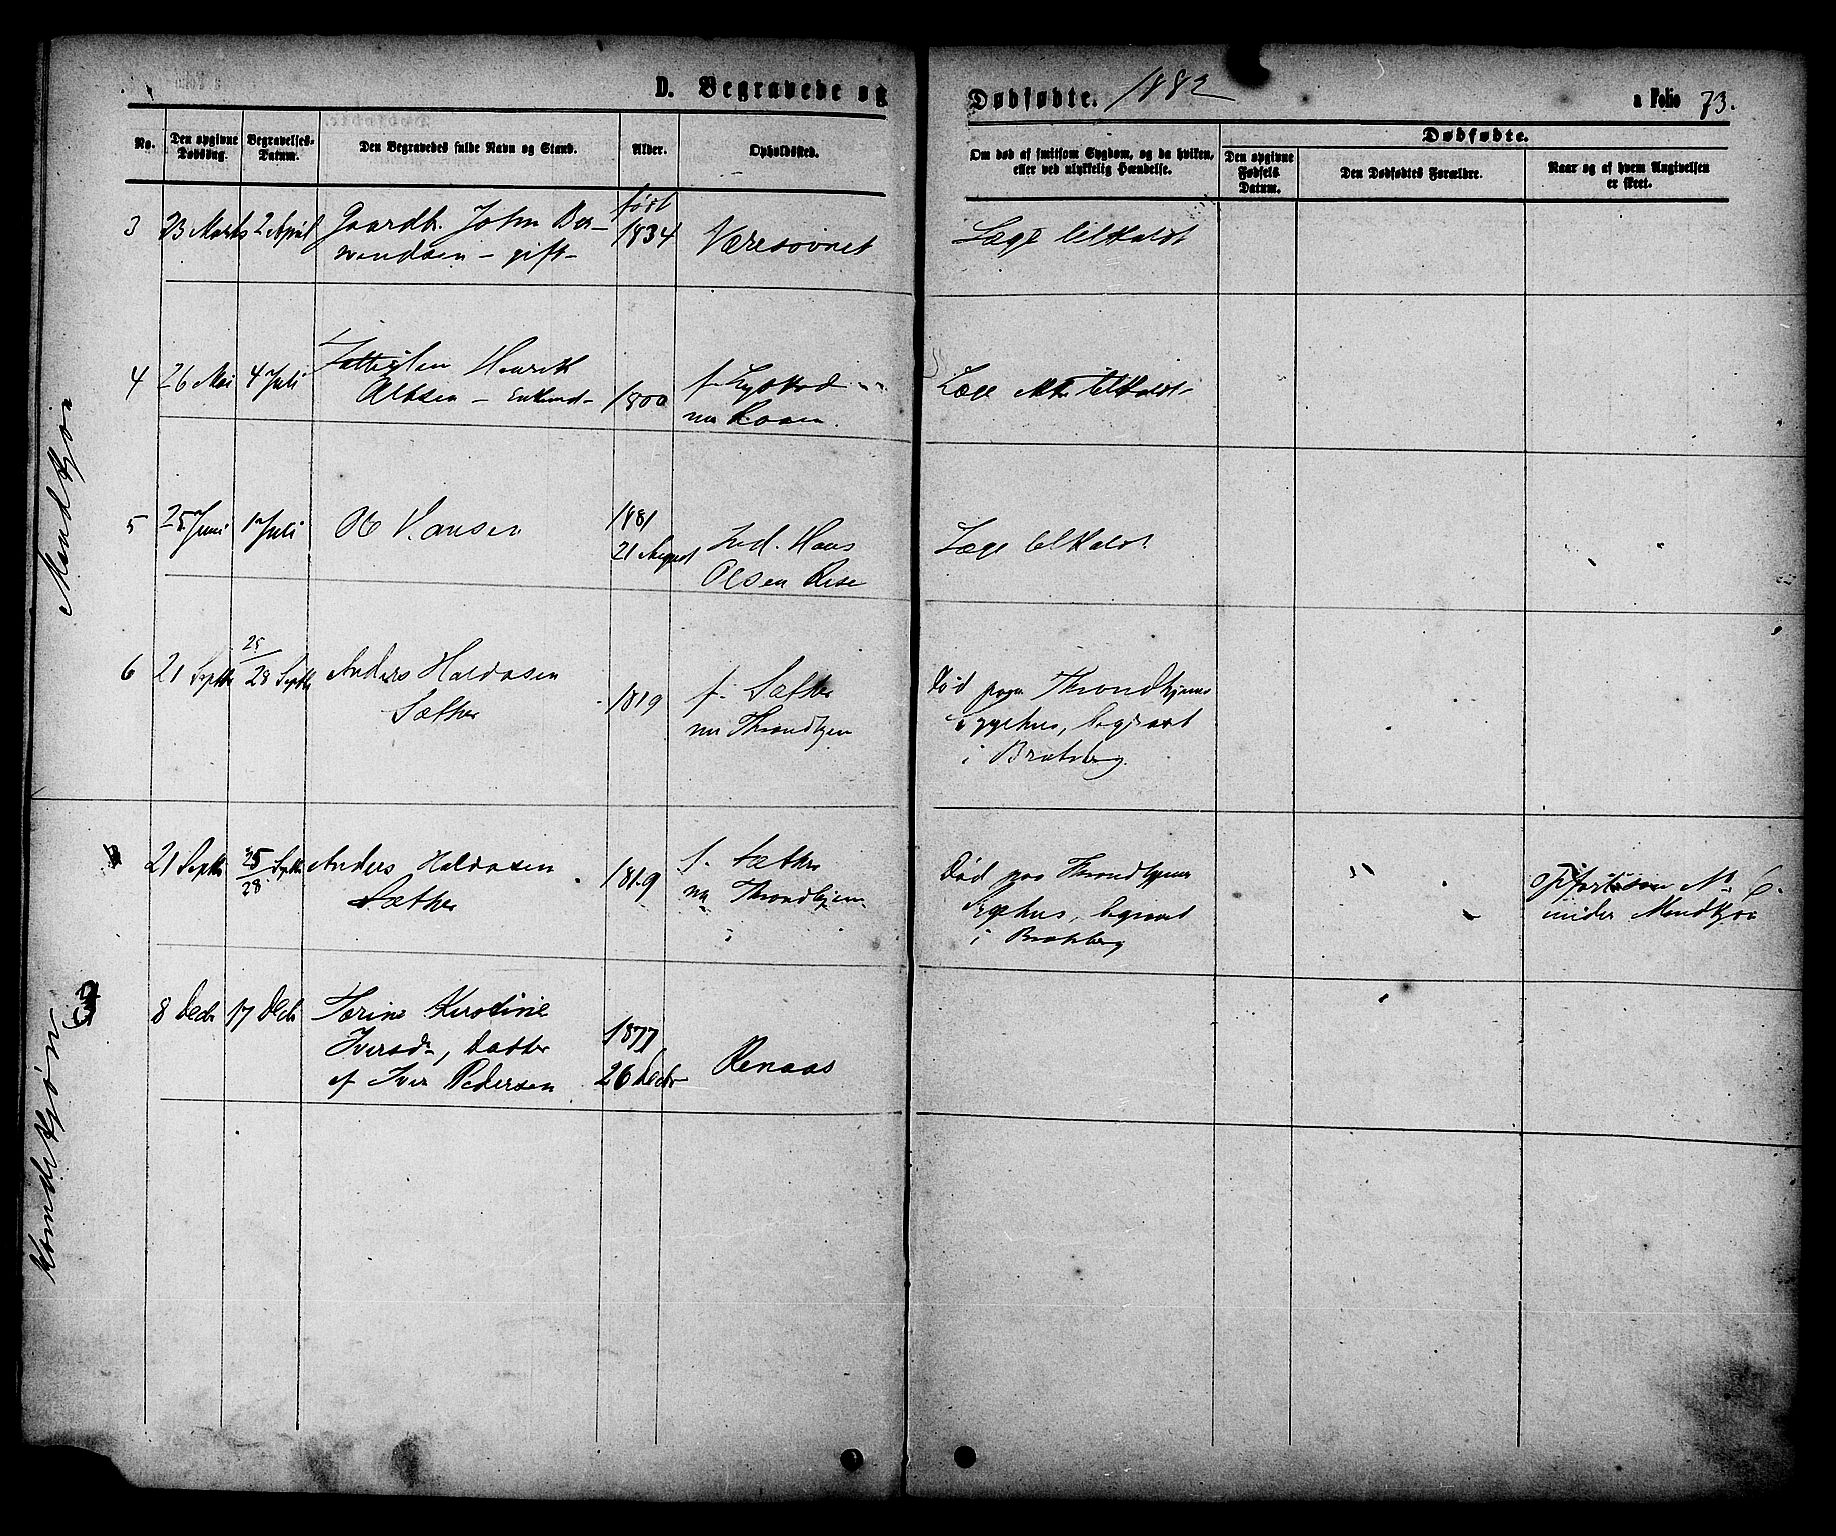 D. Begravede og Dødfødte. 1882 a Folio 73.
Dødfødte.
No.
Den opgivne Dødsdag.
Begravelses-Datum.
Den Begravedes fulde Navn og Stand.
Alder.
Opholdssted.
Om død af smitsom Sygdom, og da hviken,
eller ved ulykkelig Hændelse.
Den opgivne
Fødsels
Datum.
Den Dødfødtes Forældre.
Naar og af hvem Angivelsen
er skeet.
Mændkjøn
født
3 23 Marts 2 April Gaardbr. John 1834 Læge tilkaldt
gift
4 26 Mai 4 Juli Henrik
Enkemd 1800 Læge ikke tilkaldt
nu
5 25 Juni 1 Juli Ole Hansen 1881 Læge tilkaldt
21 August Ind. Hans
Olsen Rise
25
6 21 Septbr 28 Septbr Anders Haldosen 1819 f. Sæther Død paa Throndhjems
Sæther nu Throndhjem Sygehus, begravet
i Bratsberg.
Kvindekjøn
21 Septbr 25 Septbr Anders Haldosen 1819 f. Sæther Død paa Throndhjems No 6.
28 Sæther nu Throndhjem Sygehus, begravet under Mandkjøn
i Bratsberg
8 Decbr 17 Decbr Kirstine 1877
Iversdr, Datter 26 Decbr Renaas
af Iver Pedersen